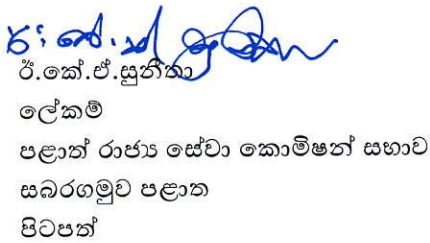 ඊ.කේ.ඒ.සුනීතා
ලේකම්
පළාත් රාජ්‍ය සේවා කොමිෂන් සභාව
සබරගමුව පළාත
පිටපත්